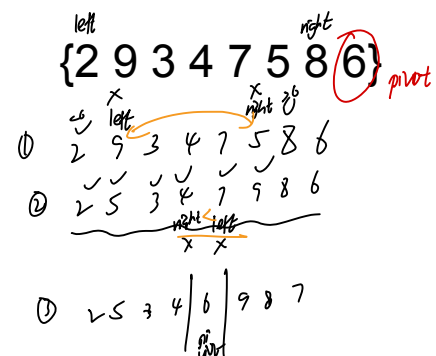 left right
{2 9 3 4 7 5 8 6}
pivot
x x
left right
① 2 9 3 4 7 5 8 6
② 2 5 3 4 7 9 8 6
right < left
x x
③ 2 5 3 4 | 6 | 9 8 7